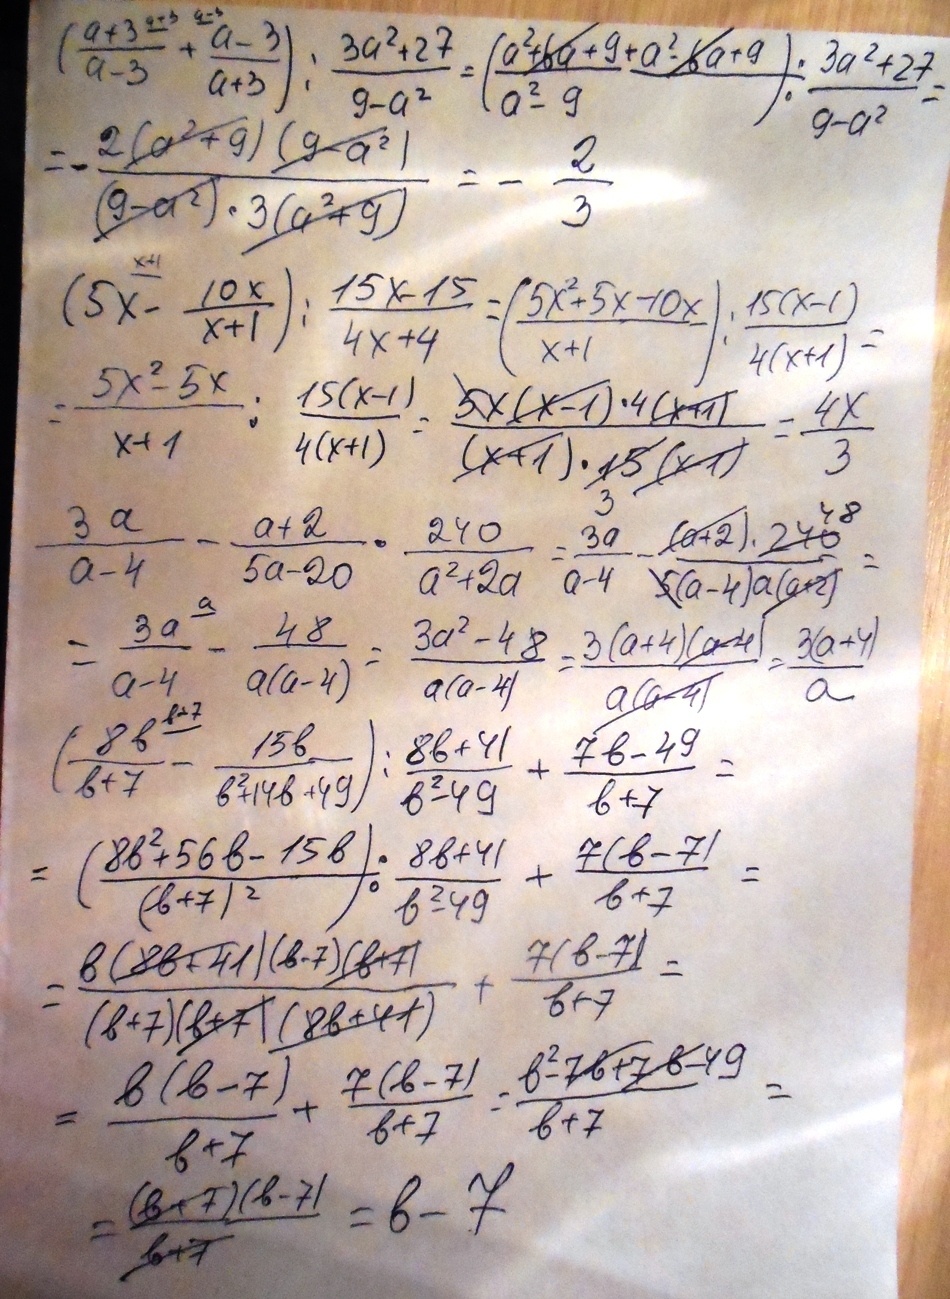 ((a+3)/(a-3) ^(a+3) + ^(a-3) (a-3)/(a+3)) : (3a²+27)/(9-a²) = ((a²+6a+9+a²-6a+9)/(a²-9)) : (3a²+27)/(9-a²) =
= - (2(a²+9)(9-a²))/((9-a²)·3(a²+9)) = - 2/3
(5x ^(x+1) - 10x/(x+1)) : (15x-15)/(4x+4) = ((5x²+5x-10x)/(x+1)) : 15(x-1)/4(x+1) =
= (5x²-5x)/(x+1) : 15(x-1)/4(x+1) = (5x(x-1)·4(x+1))/((x+1)·15(x-1)) 3 = 4x/3
3a/(a-4) - (a+2)/(5a-20) · 240/(a²+2a) = 3a/(a-4) - ((a+2)·240 48)/(5(a-4)a(a+2)) =
= 3a/(a-4) ^a - 48/(a(a-4)) = (3a²-48)/(a(a-4)) = (3(a+4)(a-4))/(a(a-4)) = 3(a+4)/a
(8b/(b+7) ^(b+7) - 15b/(b²+14b+49)) : (8b+41)/(b²-49) + (7b-49)/(b+7) =
= ((8b²+56b-15b)/(b+7)²) : (8b+41)/(b²-49) + 7(b-7)/(b+7) =
= (b(8b+41)(b-7)(b+7))/((b+7)(b+7)(8b+41)) + 7(b-7)/(b+7) =
= b(b-7)/(b+7) + 7(b-7)/(b+7) = (b²-7b+7b-49)/(b+7) =
= (b+7)(b-7)/(b+7) = b-7